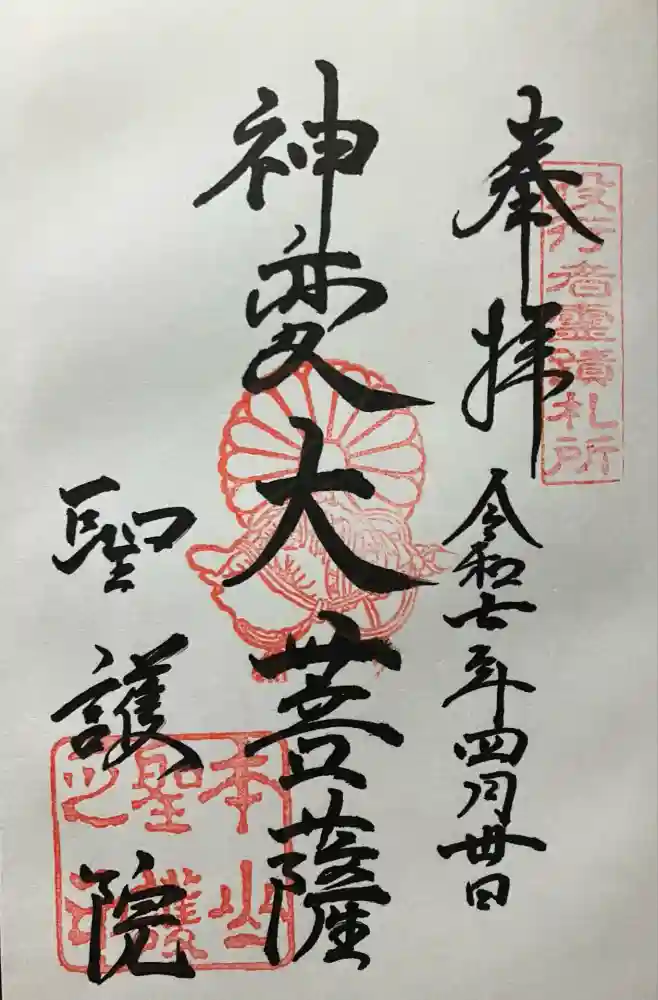 奉拝
役行者霊蹟札所
令和七年四月卅日
神変大菩薩
聖護院
本山
聖護